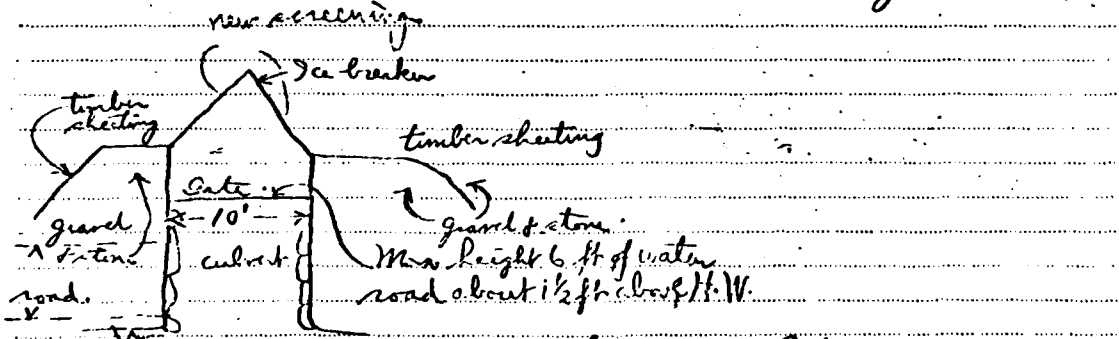 new screening
Ice breaker
timber
sheeting
timber sheeting
Gate
10'
gravel
& stone
culvert
gravel & stone.
Max height 6 ft of water
road about 1½ ft above H.W.
road.